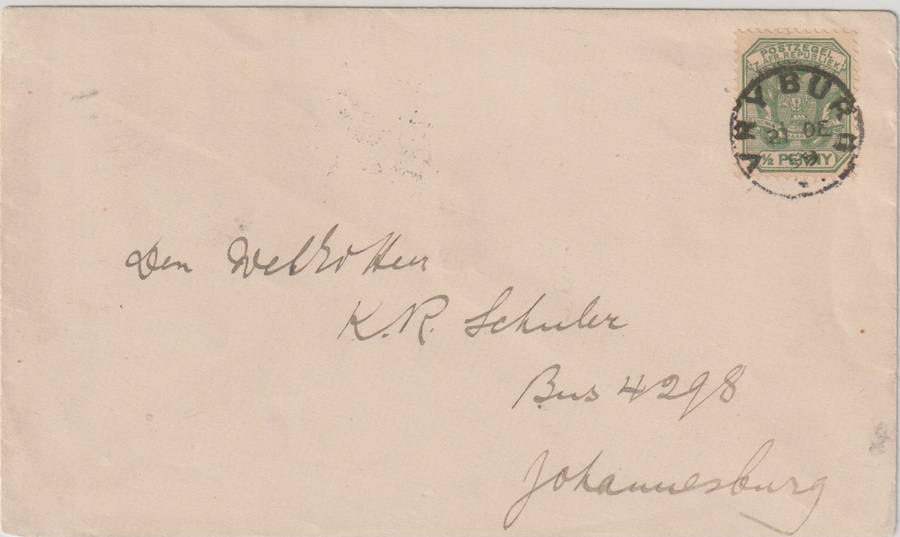 POSTZEGEL
Z. AFR. REPUBLIEK
VRYBURG
21 DE
99
½ PENNY
Den WelEd Heer
K. R. Schuler
Bus 4298
Johannesburg